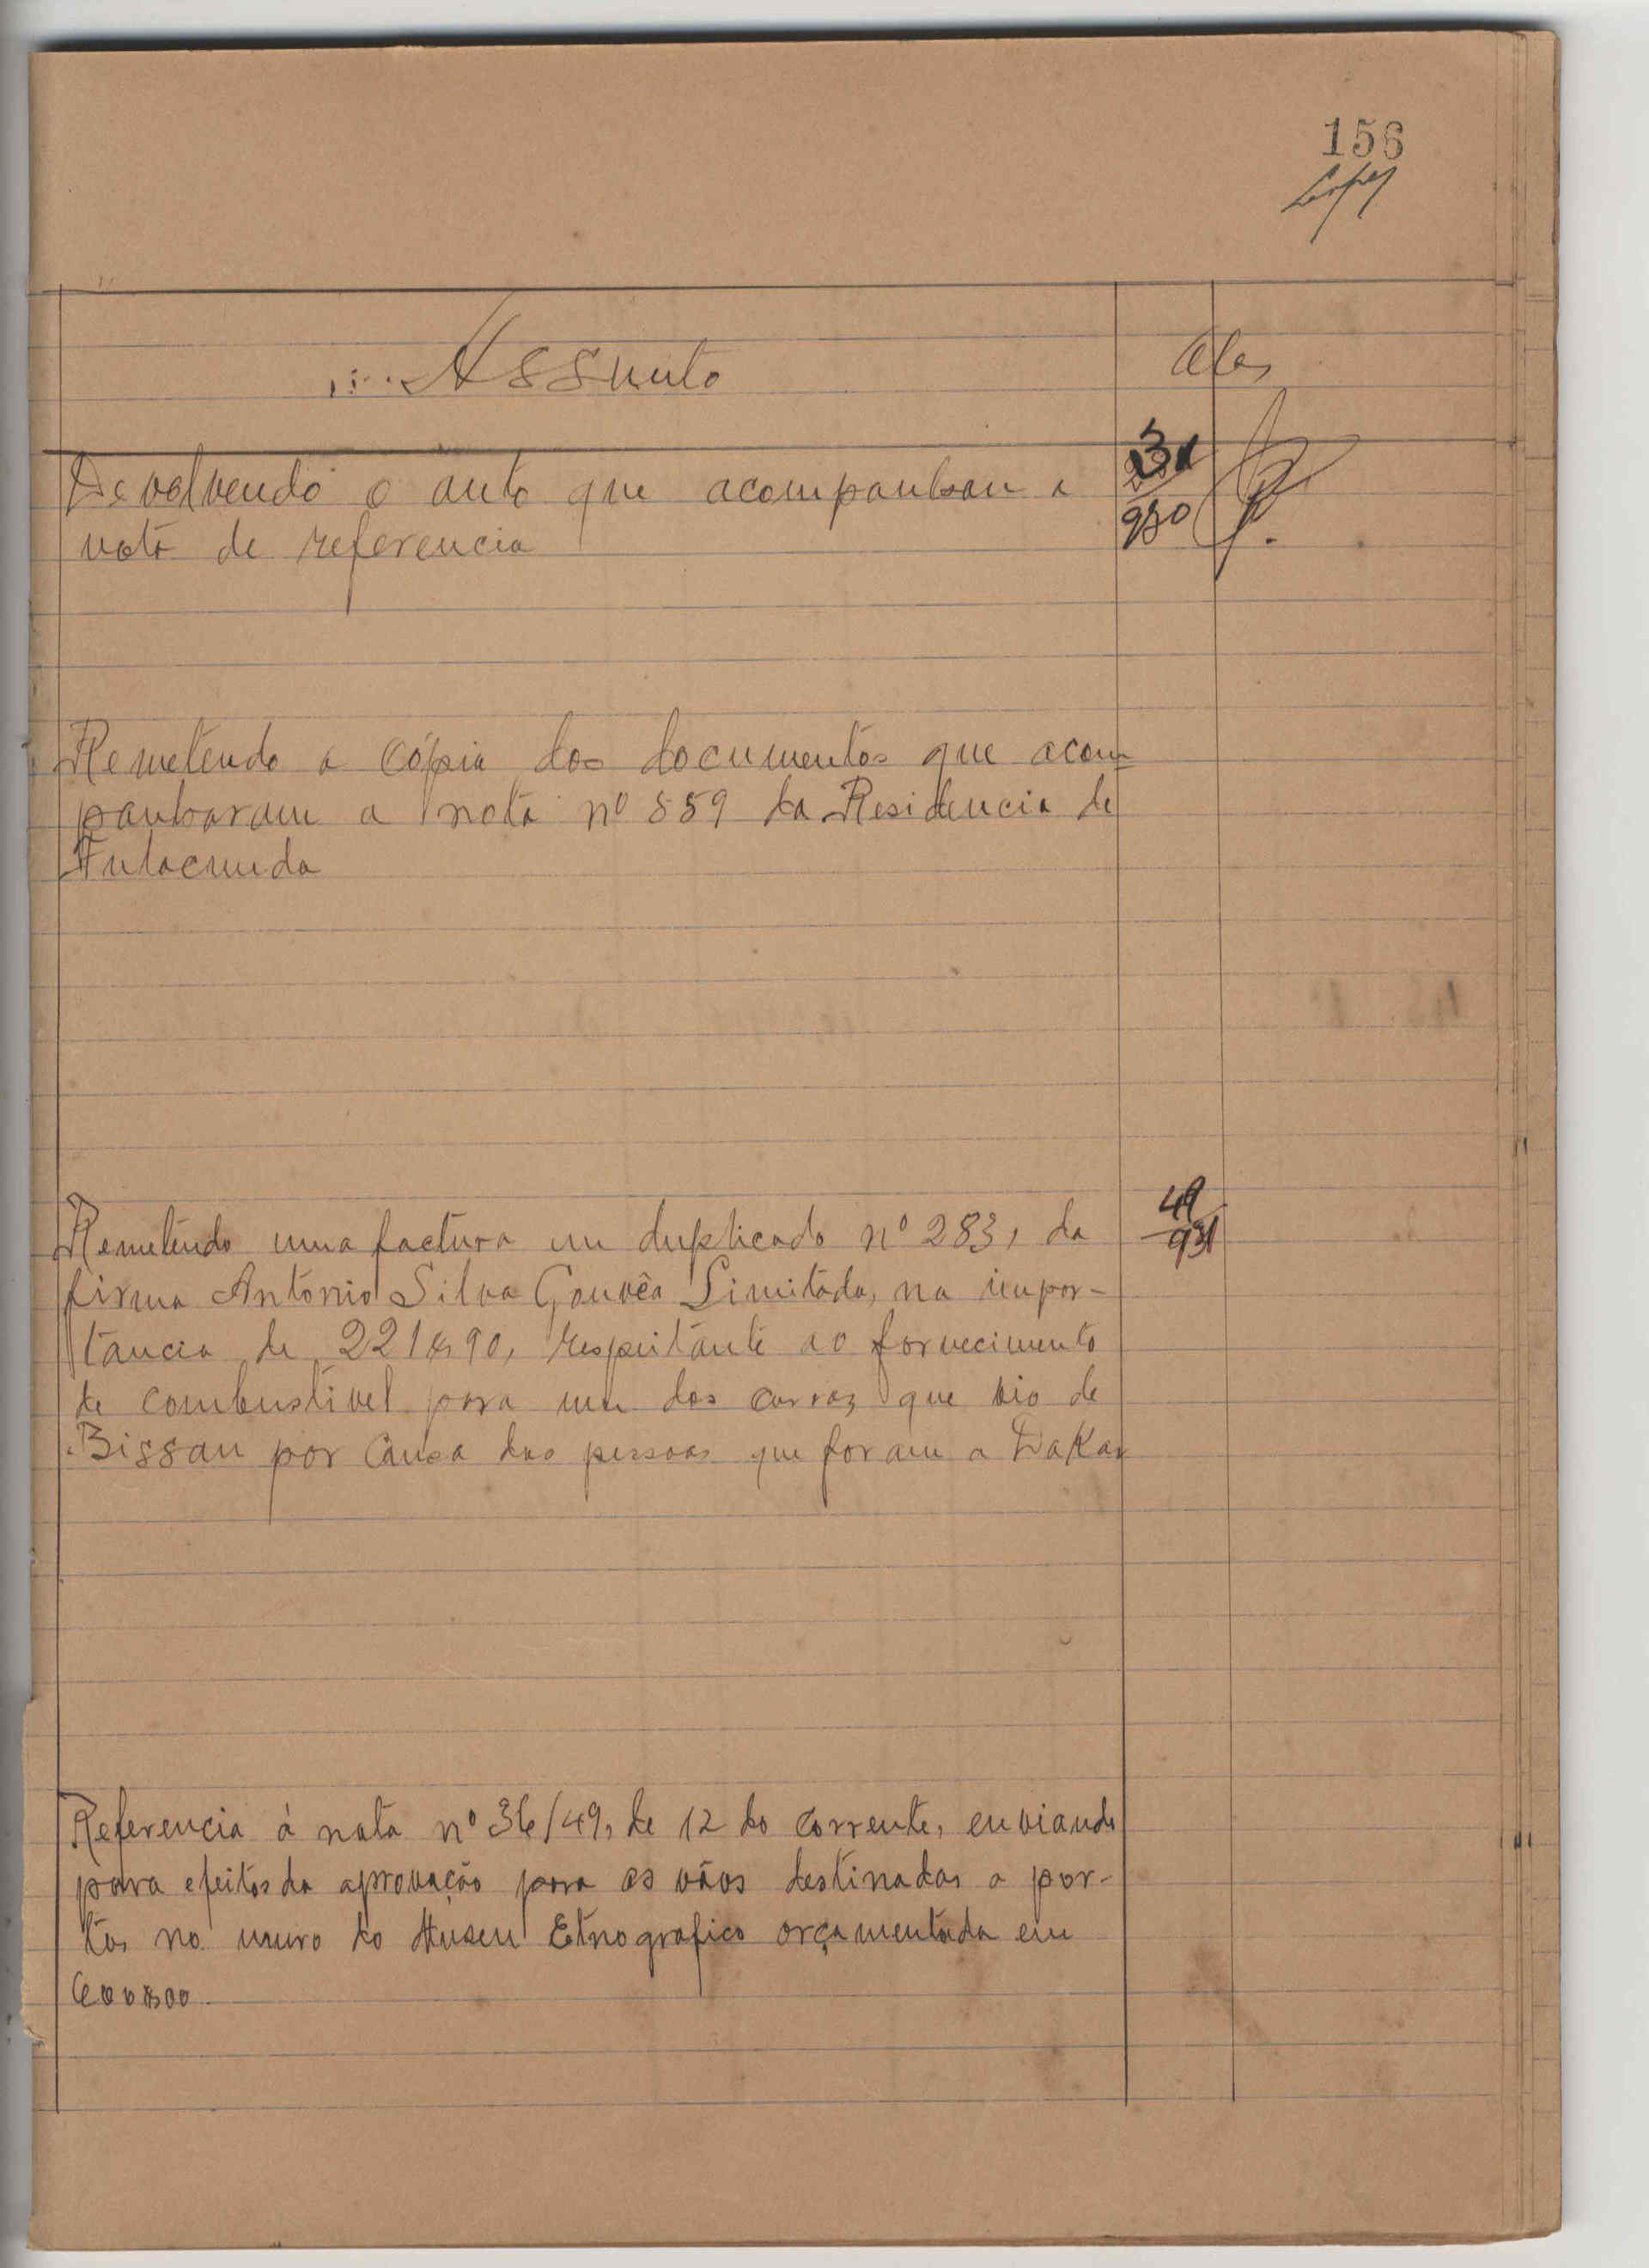 156
Lopes
Assunto
Obs
Devolvendo o auto que acompanhou a
nota de referencia
31
930
Remetendo a cópia dos documentos que acom=
panharam a nota nº 859 da Residencia de
Fulacunda
Remetendo uma factura em duplicado nº 283, da
firma António Silva Gouvêa Limitada, na impor-
tancia de 221$90, respeitante ao fornecimento
de combustivel para um dos carros que vio de
Bissau por causa das pessoas que foram a Dakar
49
931
Referencia á nota nº 36/49, de 12 do corrente, enviando
para efeitos da aprovação para os vãos destinadas a por-
tas no muro do Museu Etnografico orçamentada em
600$00